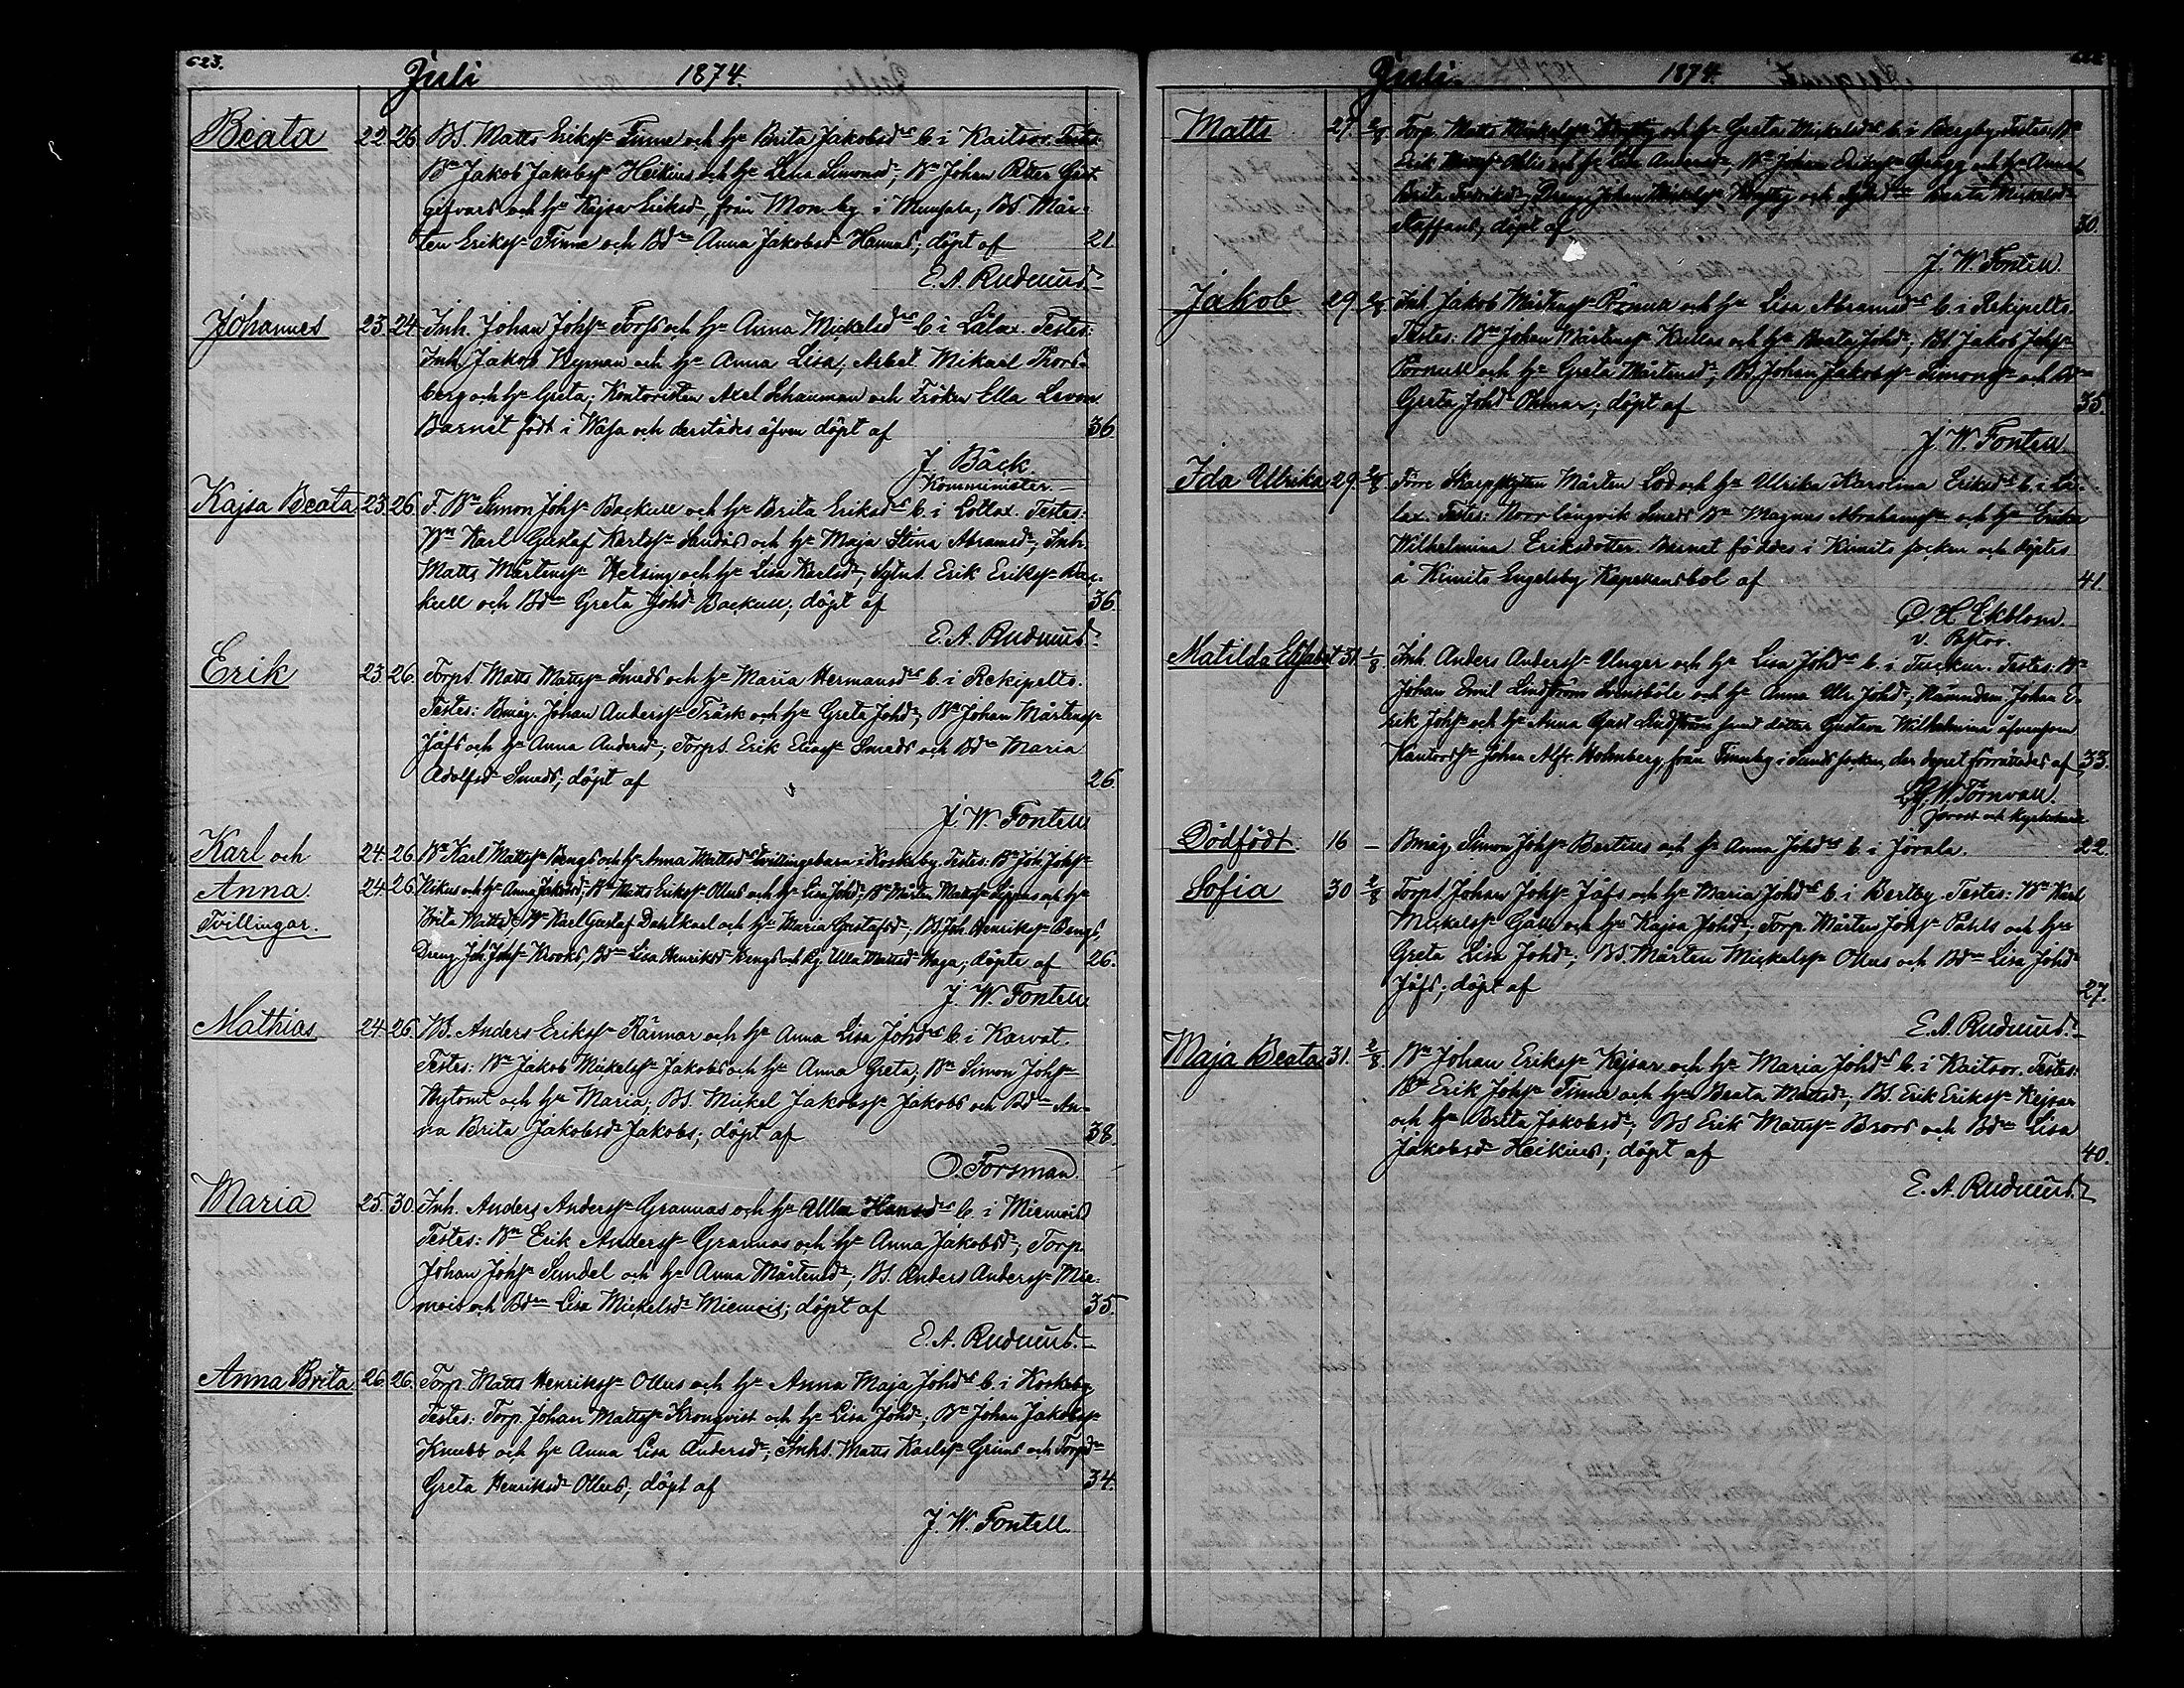 623.
Juli 1874.
Beata 22. 26. BS. Matts Erikss. Finne och h. Brita Jakobsd. b. i Kaitsor. Testes:
Bn Jakob Jakobss. Heikius och h. Lena Simonsd., Bn Johan Petter Gäst-
gifvars och h. Kajsa Eriksd., från Monby i Munsala, BS. Mår-
ten Erikss. Finne och Bdn Anna Jakobsd. Hannus; döpt af 21.
E. A. Rudnäs
Johannes 23. 24. Inh. Johan Johss. Forss och h. Anna Mickelsd. b. i Lålax. Testes:
Inh. Jakob Nyman och h. Anna Lisa; Arbet. Mikael Thors-
berg och h. Greta; Kontoristen Axel Schauman och Fröken Ella Levon
Barnet född i Wasa och derstädes äfven döpt af 36
J. Bäck.
Komminister
Kajsa Beata 23. 26. F. Bn Simon Johss. Backull och h. Brita Eriksd. b. i Lotlax. Testes:
Bn Karl Gustaf Karlss. Sandås och h. Maja Stina Abramsd.; Inh.
Matts Mårtenss. Helsing och h. Lisa Karlsd., Sytnt. Erik Erikss. Bac-
kull och Bdn Greta Johd. Backull; döpt af 36
E. A. Rudnäs
Erik 23. 26. Torpt. Matts Mattss. Smeds och h. Maria Hermansd. b. i Rekipelto.
Testes: Bmåg. Johan Anderss. Träsk och h. Greta Johd.; Bn Johan Mårtenss.
Jåfs och h. Anna Andersd.; Torpt. Erik Eliass. Smeds och Bdn Maria
Adolfsd. Smeds; döpt af 26.
J. W. Fontell
Karl och 24. 26. Bn Karl Mattss. Bengs och h. Anna Mattsd. tvillingebarn i Koskeby. Testes: Bn Joh. Johss.
Anna 24. 26. Kikus och h. Anna Jakobsd.; Bn Matts Erikss. Ollus och h. Lisa Johd.; Bn Mårten Matss. och h.
Tvillingar. Brita Mattsd. Bn Karl Gustaf Dahlkarl och h. Maria Gustafsd., BS. Joh. Henrikss. Bengs,
Dreng. Joh. Johss. Krooks, Bdn Lisa Henriksd. Bengs och Pig. Ulla Mattsd. Haga; döpte af 26.
J. W. Fontell
Mathias 24. 26. BS. Anders Erikss. Rännar och h. Anna Lisa Johd. b. i Karvat.
Testes: Bn Jakob Mickelss. Jakobs och h. Anna Greta; Bn Simon Johss.
Nytomt och h. Maria; BS. Mickel Jakobss. Jakobs och Bdn An-
na Brita Jakobsd. Jakobs; döpt af 38.
O. Forsman
Maria 25. 30. Inh. Anders Anderss. Grannas och h. Ulla Hansd. b. i Miemois
Testes: Bn Erik Anderss. Grannas och h. Anna Jakobsd.; Torp.
Johan Johss. Sundel och h. Anna Mårtensd.; BS. Anders Anderss. Mie-
mois och Bdn Lisa Mickelsd. Miemois; döpt af 35.
E. A. Rudnäs
Anna Brita 26. 26. Torp. Matts Henrikss. Ollus och h. Anna Maja Johd. b. i Koskeby.
Testes: Torp. Johan Mattss. Kronqvist och h. Lisa Johd.; Bn Johan Jakobss.
Knubb och h. Anna Lisa Andersd.; Inhs. Matts Karlss. Grims och Torpd.
Greta Henriksd. Ollus; döpt af 34.
J. W. Fontell
Juli. 1874.
Matts 27. 2/8 Torp. Matts Mickelss. och h. Greta Mickelsd. b. i Bergby. Testes: Bn
Erik och h. Lisa Andersd., Bn Johan Erikss. Gregg och h. Anna
Brita Fredriksd.; Dreng Johan Mickelss. och Beata Mickelsd.
Staffans; döpt af 30.
J. W. Fontell.
Jakob 29. 2/8 Inh. Jakob Mårtenss. Pörnull och h. Lisa Abramsd. b. i Rekipelto.
Testes: Bn Johan Mårtenss. Kullas och h. Beata Johd.; BS. Jakob Johss.
Pörnull och h. Greta Mårtensd.; BS. Johan Jakobss. Simons och Bdn
Greta Johd. Ohmar; döpt af 35.
J. W. Fontell.
Ida Ullrika 29. 2/8 Förre Skarpskytten Mårten Lod och h. Ullrika Karolina Eriksd. b. i Lå-
lax. Testes: Norrlångvik Smeds Bn Magnus Abrahamss. och h. Erika
Wilhelmina Eriksdotter. Barnet föddes i Kimito socken och döptes
å Kimito Engelsby Kapellansbol af 41.
O. H. Ekblom.
v. Pstor.
Matilda Elisabet 31. 1/8. Inh. Anders Anderss. Unger och h. Lisa Johd. b. i Tuckur. Testes: Bn
Johan Emil Lindström Svensböle och h. Anna Ulr. Johd.; Nämndem. Johan E-
rik Johss. och h. Anna Gust. Lindström samt dotter Gustava Wilhelmina äfvensom
Kantorss. Johan Alfr. Holmberg, från Finnby i Sunds socken, der dopet förrättades af 33.
W. Törnvall.
Provst och Kyrkoherde
Dödfödt 16 – Bmåg. Simon Johss. Bertils och h. Anna Johd. b. i Jörala. 22.
Sofia 30 2/8 Torpt. Johan Johss. Jåfs och h. Maria Johd. b. i Bertby. Testes: Bn Karl
Mickelss. Gåll och h. Kajsa Johd.; Torp. Mårten Johss. Påhls och h.
Greta Lisa Johd.; BS. Mårten Mickelss. Ollus och Bdn Lisa Johd.
Jåfs; döpt af 27.
E. A. Rudnäs
Maja Beata 31. 2/8. Bn Johan Erikss. Kejsar och h. Maria Johd. b. i Kaitsor. Testes:
Bn Erik Johss. Finne och h. Beata Mattsd.; BS. Erik Erikss. Kejsar
och h. Brita Jakobsd.; BS Erik Mattss. Brors och Bdn Lisa
Jakobsd. Heikius; döpt af 40.
E. A. Rudnäs